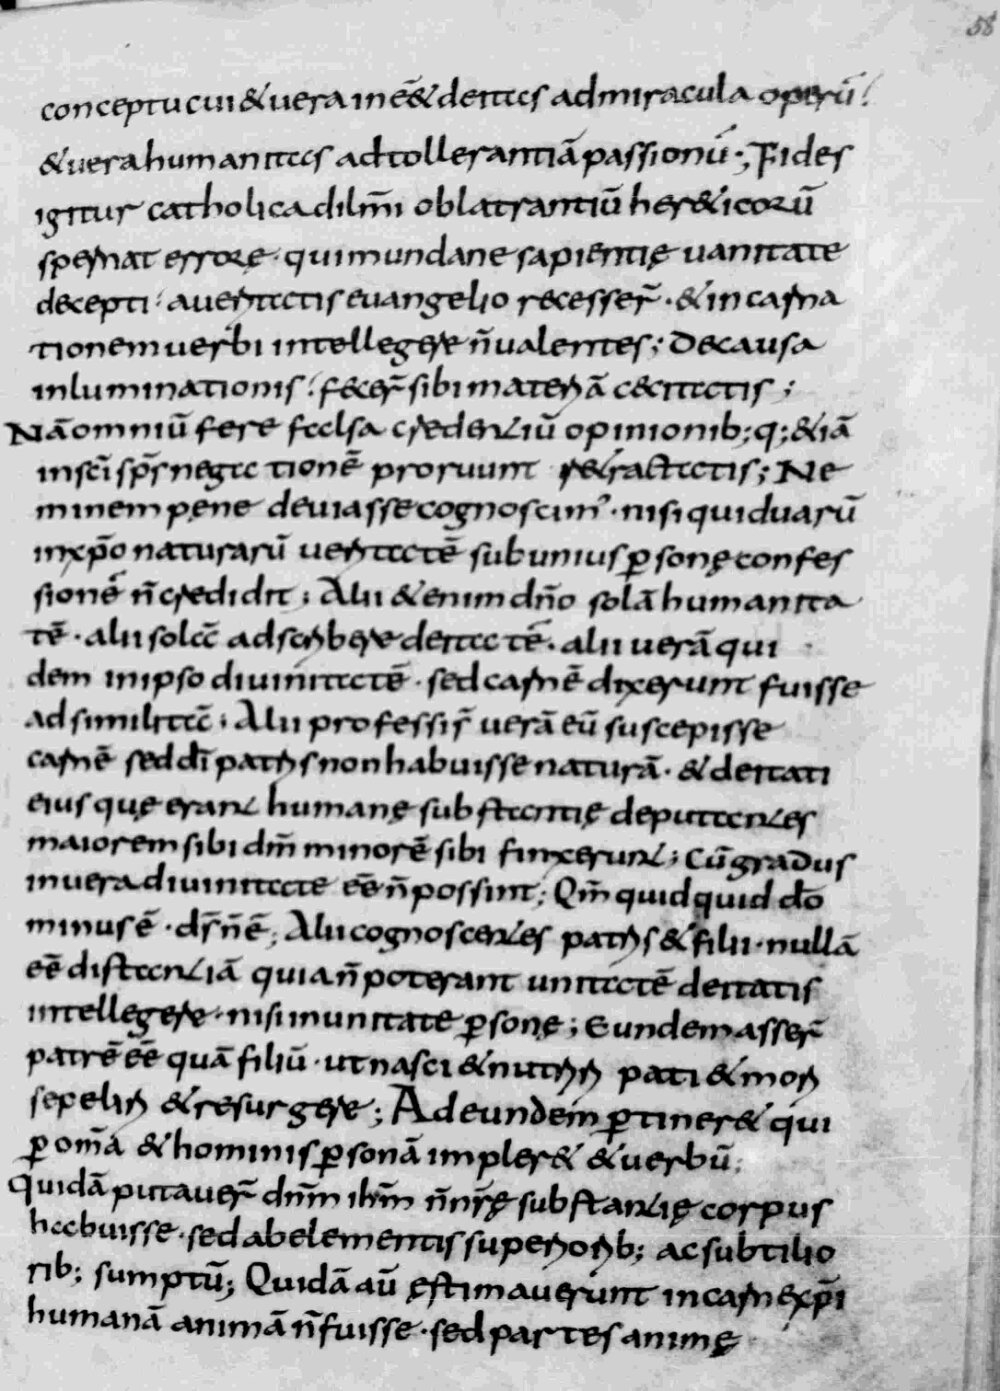 58
conceptu cui & uera inē& deitas ad miracula operū.
& uera humanitas ad tollerantiā passionū.; Fides
igitur catholica dilm̄i oblatrantiū her&icorū
spernat errorę. qui mundane sapientię uanitate
decepti. a ueritatis euangelio recesser̄. & incarna
tionem uerbi intellegere n̄ ualentes; De causa
inluminationis. fecer̄ sibi materiā cecitatis;
Nā omniū fere falsa credentiū opinionib; q; &iā
in sc̄i sp̄s negationē proruunt retractatis; Ne
minem pene deuiasse cognoscim'. nisi qui duarū
in xp̄o naturarū ueritatē sub unius p̄sonę confes
sionē n̄ credidit; Alii &enim dn̄o solā humanita
tē. alii solā adscribere deitatē. alii uerā qui
dem in ipso diuinitatē. sed carnē dixerunt fuisse
ad similitā; Alii professis̄ uerā eū suscepisse
carnē sed dī patris non habuisse naturā. & deitati
eius quę erant humanę substantię deputantes
maiorem sibi dm̄ minorē sibi finxerunt; Cū gradus
in uera diuinitate eē n̄ possint; Qm̄ quidquid do̅
minus ē. ds̄ n̄ ē; Alii cognoscentes patris & filii. nullā
eē distantiā quia n̄ poterant unitatē deitatis
intellegere. nisi in unitate p̄sonę; Eundem asser̄
patrē eē quā filiū. ut nasci & nutriri pati & mori
sepeliri & resurgere; Ad eundem p̄tiner& qui
p̄ om̄a & hominis p̄sonā impler& & uerbū;
Quidā putauer̄ dn̄m ihm̄ n̄ nr̄ę substantię corpus
habuisse. sed ab elementis superiorib; ac subtilio
rib; sumptū; Quidā aū ęstimauerunt in carne xp̄i
humanā animā n̄ fuisse. sed partes animę